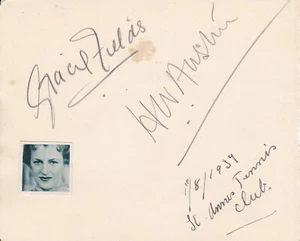 Gracie Fields
HW Austin
/8/1934
St Annes Tennis
Club.